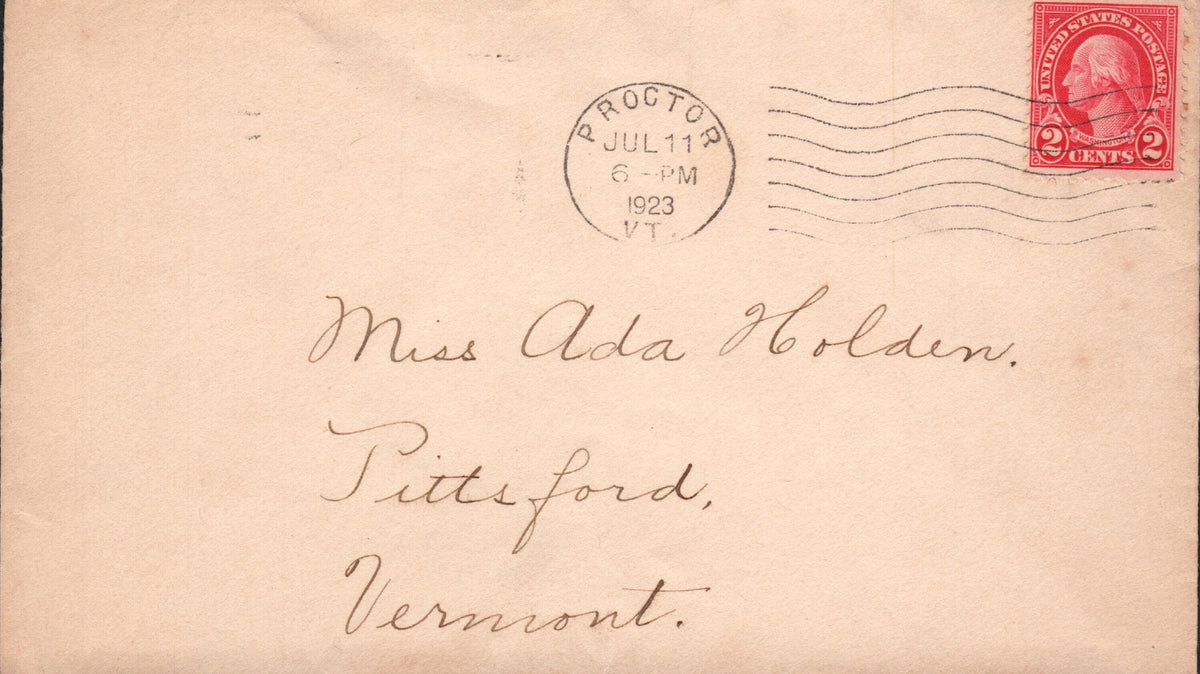 UNITED STATES POSTAGE
WASHINGTON
2 CENTS 2
PROCTOR
JUL 11
6 - PM
1923
VT.
Miss Ada Holden.
Pittsford,
Vermont.